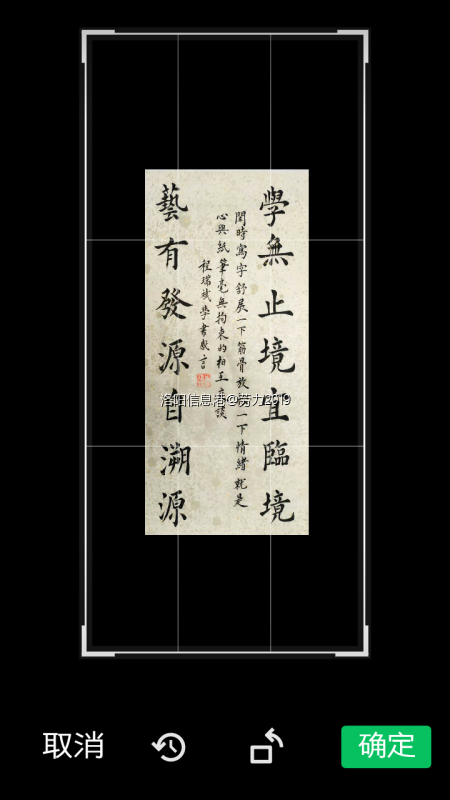 學無止境宜臨境
閒時寫字舒展一下筋骨放一下情緒就是
心與紙筆毫無拘束的相互交談
程瑞斌學書敬言
藝有發源自溯源
洛阳信息港@努力2019
取消
确定